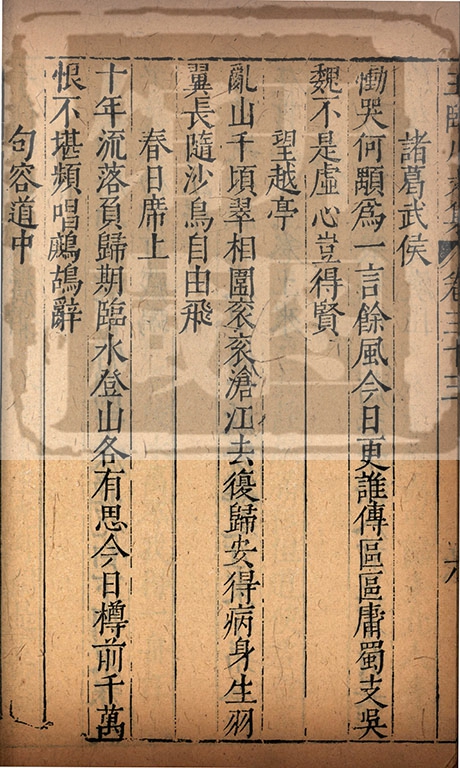 王臨川文集 卷三十三 六
諸葛武侯
慟哭何顒為一言餘風今日更誰傳區區庸蜀支吳
魏不是虛心豈得賢
望越亭
亂山千頃翠相圍衮衮滄江去復歸安得病身生羽
翼長隨沙鳥自由飛
春日席上
十年流落負歸期臨水登山各有思今日樽前千萬
恨不堪頻唱鷓鴣辭
句容道中